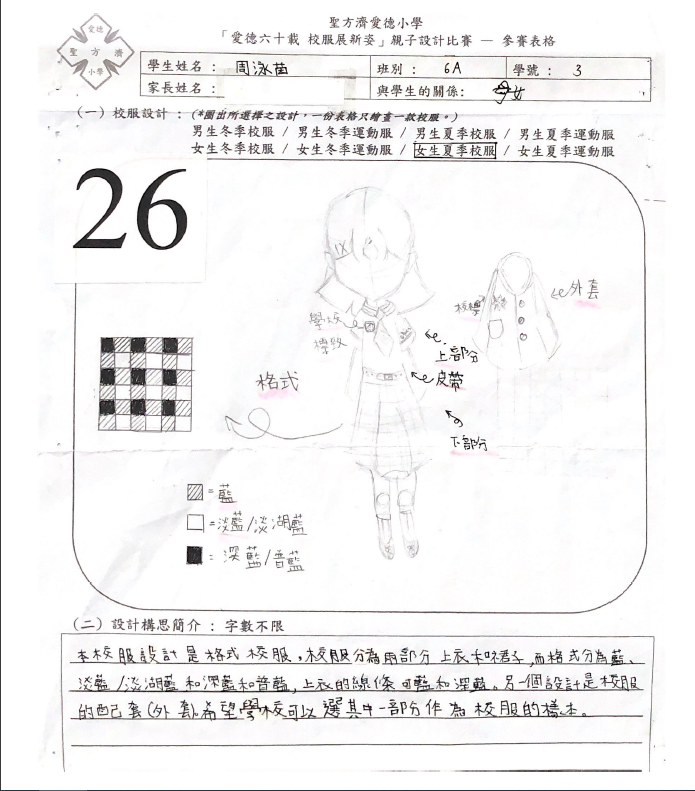 聖方濟愛德小學
「愛德六十載 校服展新姿」親子設計比賽 — 參賽表格
愛德
聖 方 濟
小學
學生姓名： 周泳茵 班別： 6A 學號： 3
家長姓名： 與學生的關係： 母女
(一) 校服設計：(*圈出所選擇之設計，一份表格只繪畫一款校服。)
男生冬季校服 / 男生冬季運動服 / 男生夏季校服 / 男生夏季運動服
女生冬季校服 / 女生冬季運動服 / 女生夏季校服 / 女生夏季運動服
26
外套
學校
標致
上部分
格式
皮帶
下部分
= 藍
= 淡藍/淡湖藍
= 深藍/普藍
(二) 設計構思簡介：字數不限
本校服設計是格式校服，校服分為兩部分上衣和裙子，而格式分為藍、
淡藍/淡湖藍和深藍和普藍，上衣的線條 藍和深藍。另一個設計是校服
的 套(外套)。希望學校可以選其中一部分作為校服的樣本。